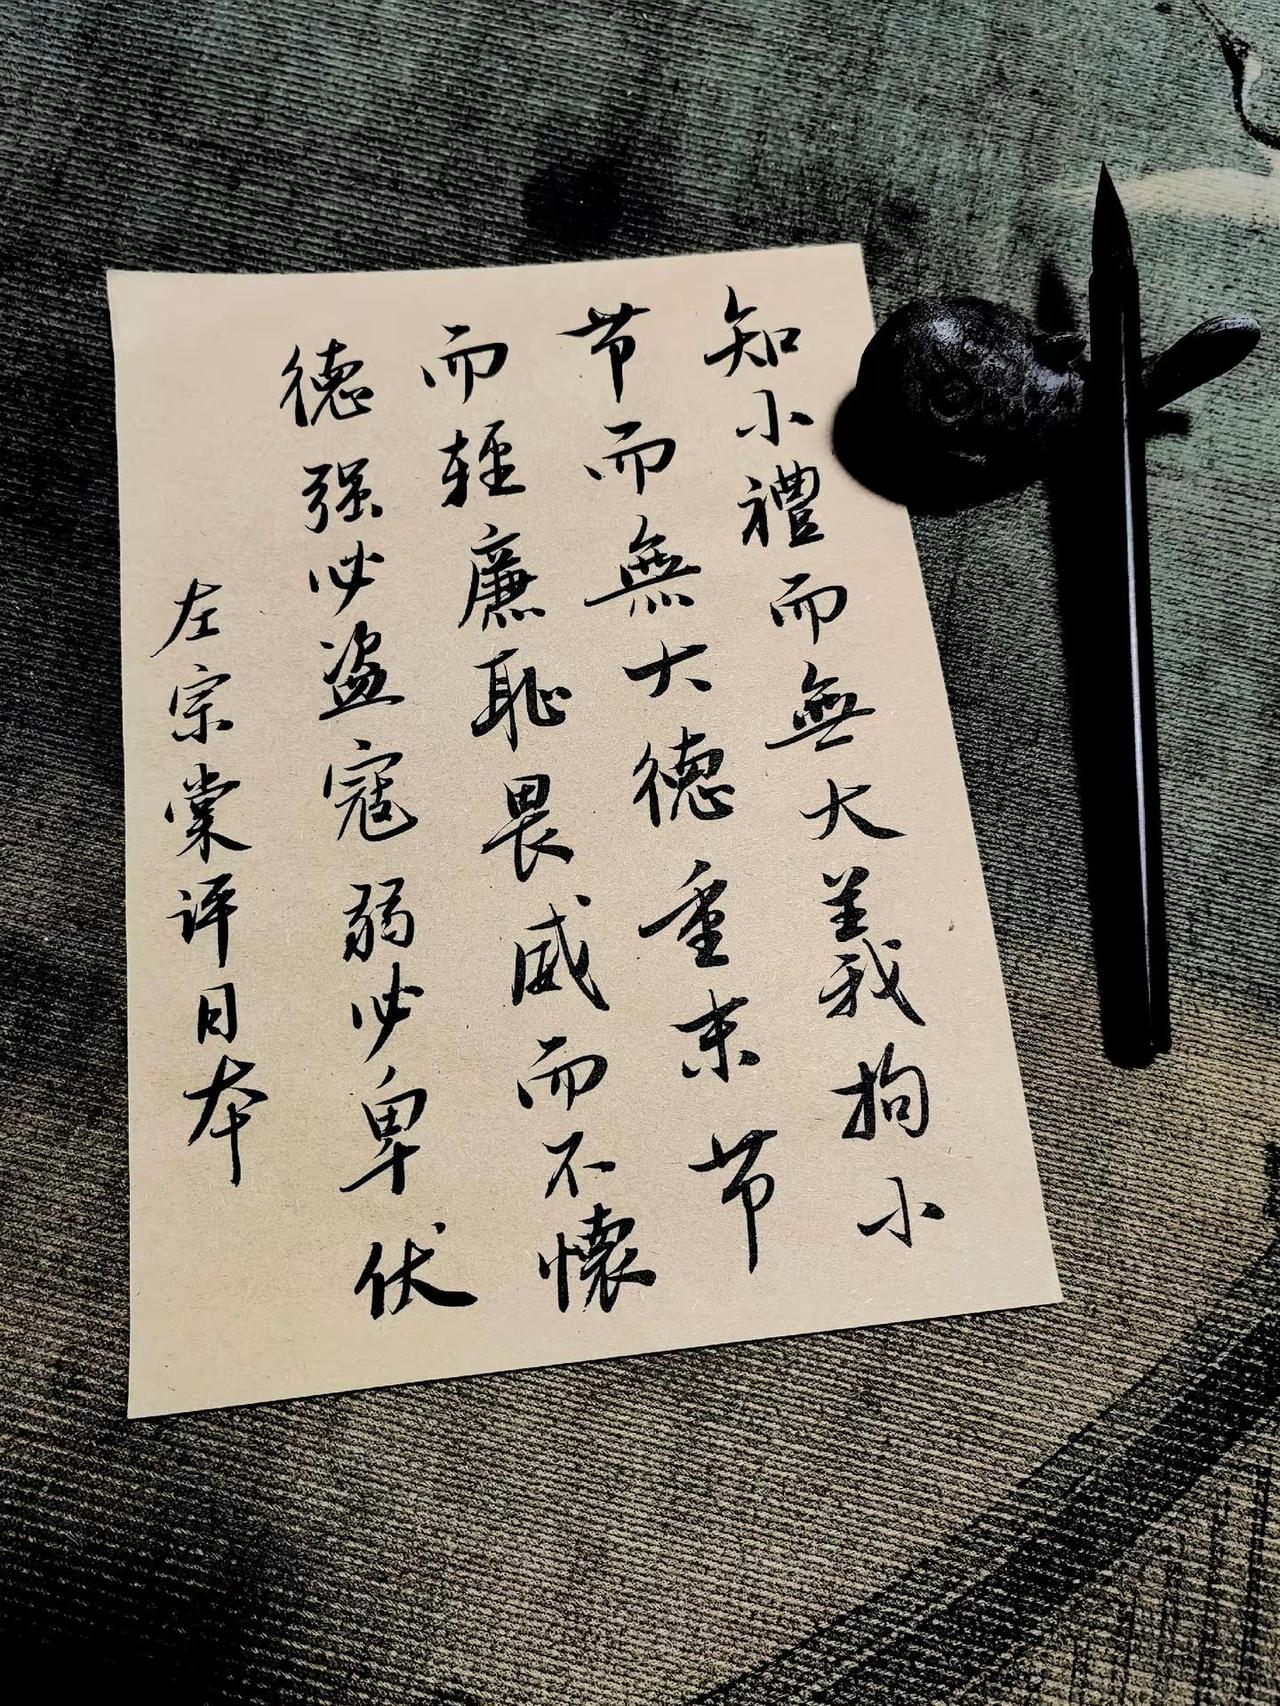 知小禮而無大義拘小
节而無大德重末节
而輕廉恥畏威而不懷
德强必盗寇弱必卑伏
左宗棠评日本